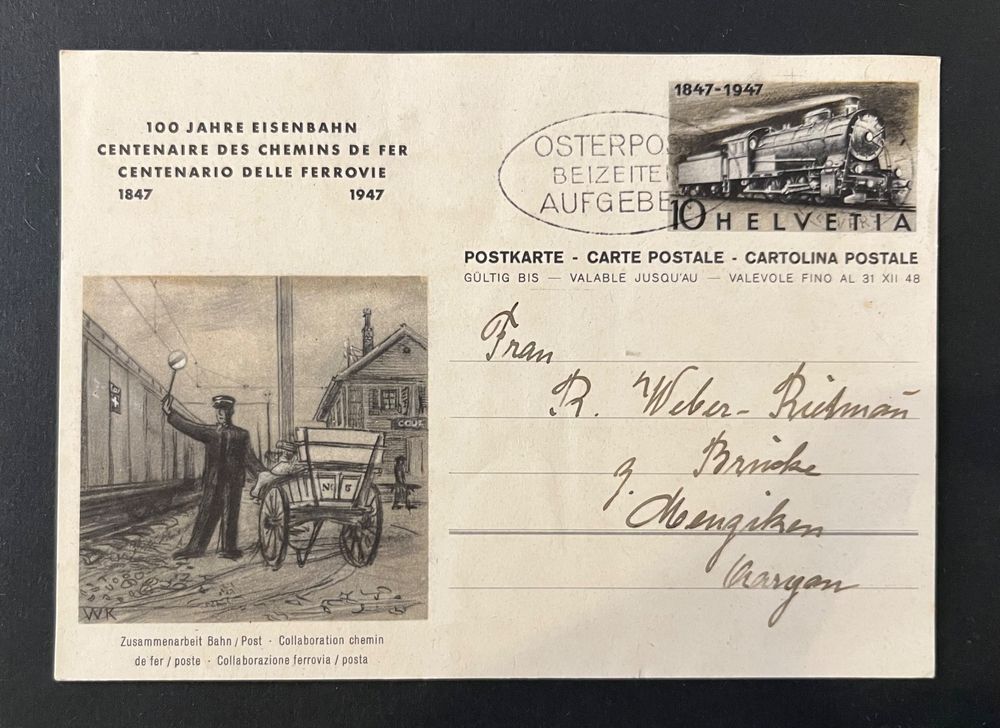 100 JAHRE EISENBAHN
CENTENAIRE DES CHEMINS DE FER
CENTENARIO DELLE FERROVIE
1847 1947
1847-1947
OSTERPOS
BEIZEITE
AUFGEBE
10 HELVETIA
POSTKARTE - CARTE POSTALE - CARTOLINA POSTALE
GÜLTIG BIS — VALABLE JUSQU'AU — VALEVOLE FINO AL 31 XII 48
Frau
R. Weber-
z. Brücke
Menziken
Aargau
No 5
WK
Zusammenarbeit Bahn / Post · Collaboration chemin
de fer / poste · Collaborazione ferrovia / posta